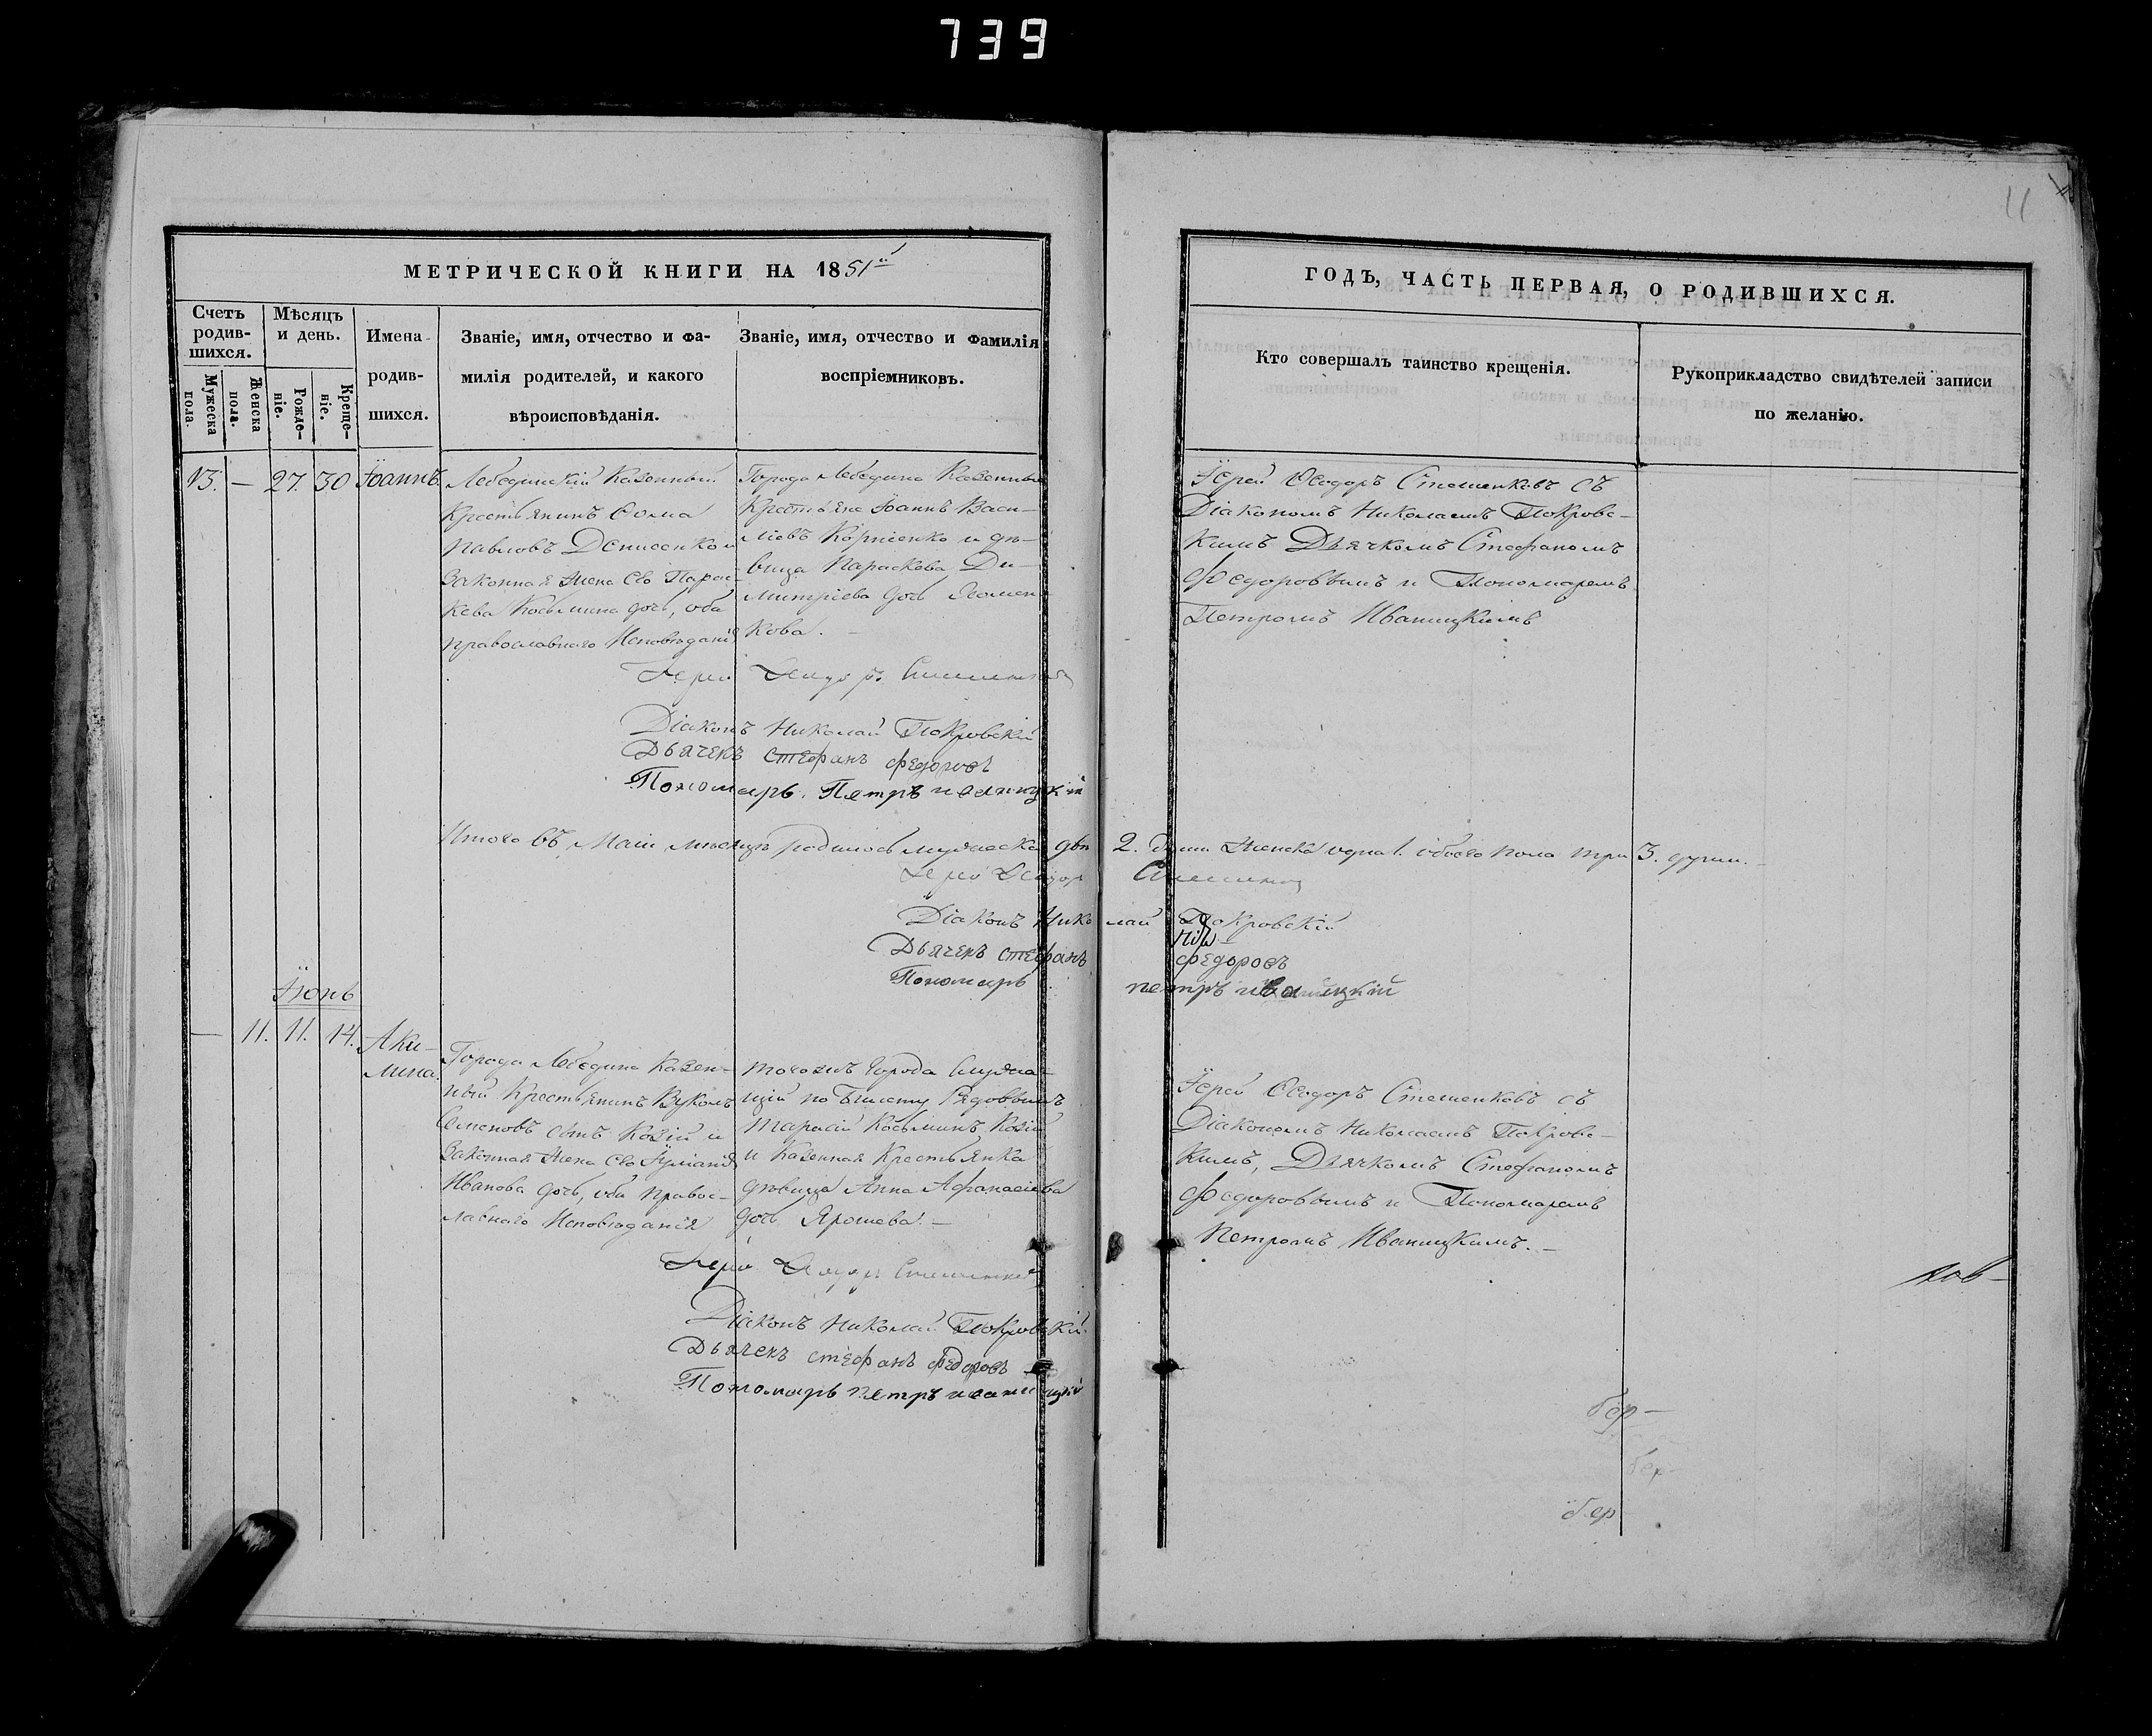 739
11
МЕТРИЧЕСКОЙ КНИГИ НА 1851й
Счетъ родив-шихся.
Мужеска пола.
Женска пола.
Мѣсяцъ и день.
Рожде-ніе.
Креще-ніе.
Имена родив-шихся.
Званіе, имя, отчество и фа-
милія родителей, и какого
вѣроисповѣданія.
Званіе, имя, отчество и фамилія
воспріемниковъ.
13. — 27. 30 Іоаннъ.
Лебединскій Казенный
Крестьянинъ Ѳома
Павловъ Денисенко и
Законная Жена Его Парас-
кева Косьмина дочь, оба
православнаго Исповѣданія
Города Лебедина Казенные
Крестьяне Іоаннъ Васи-
ліевъ Корніенко и дѣ-
вица Параскева Ди-
митріева дочь Хомен-
кова. —
Іерей Ѳеодоръ Стешенковъ
Діаконъ Николай Покровскій
Дьячекъ Стефанъ Федоровъ
Пономарь Петръ Иваницкій
Итого въ Маіи мѣсяцѣ родилось мужеска двѣ
Іерей Ѳеодоръ
Діаконъ Нико
Дьячекъ Стефанъ
Пономарь
Іюнь
— 11. 11. 14. Аки-
лина.
Города Лебедина Казен-
ный Крестьянинъ Вуколъ
Семеновъ сынъ Козій и
Законная Жена Его Іуліанія
Иванова дочь, оба Правос-
лавнаго Исповѣданія
тогожъ Города Служа-
щій по Билету Рядовымъ
Тарасій Косьминъ Козій
и Казенная Крестьянка
дѣвица Анна Афанасіева
дочь Ярошева. —
Іерей Ѳеодоръ Стешенковъ
Діаконъ Николай Покровскій
Дьячекъ Стефанъ Федоровъ
Пономарь Петръ Иваницкій
ГОДЪ, ЧАСТЬ ПЕРВАЯ, О РОДИВШИХСЯ.
Кто совершалъ таинство крещенія.
Рукоприкладство свидѣтелей записи
по желанію.
Іерей Ѳеодоръ Стешенковъ съ
Діакономъ Николаемъ Покровс-
кимъ Дьячкомъ Стефаномъ
Федоровымъ и Пономаремъ
Петромъ Иваницкимъ
2. души Женска одна 1. обоего пола три 3. души. —
Стешенковъ
лай Покровскій
Федоровъ
петръ иваницкій
Іерей Ѳеодоръ Стешенковъ съ
Діакономъ Николаемъ Покровс-
кимъ, Дьячкомъ Стефаномъ
Федоровымъ и Пономаремъ
Петромъ Иваницкимъ. —
ков-
бер-
бер-
бер